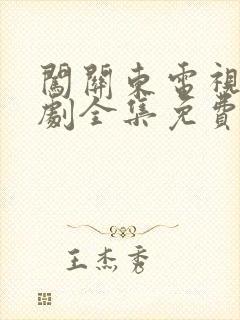 闖關東電視
劇全集免費
王杰秀